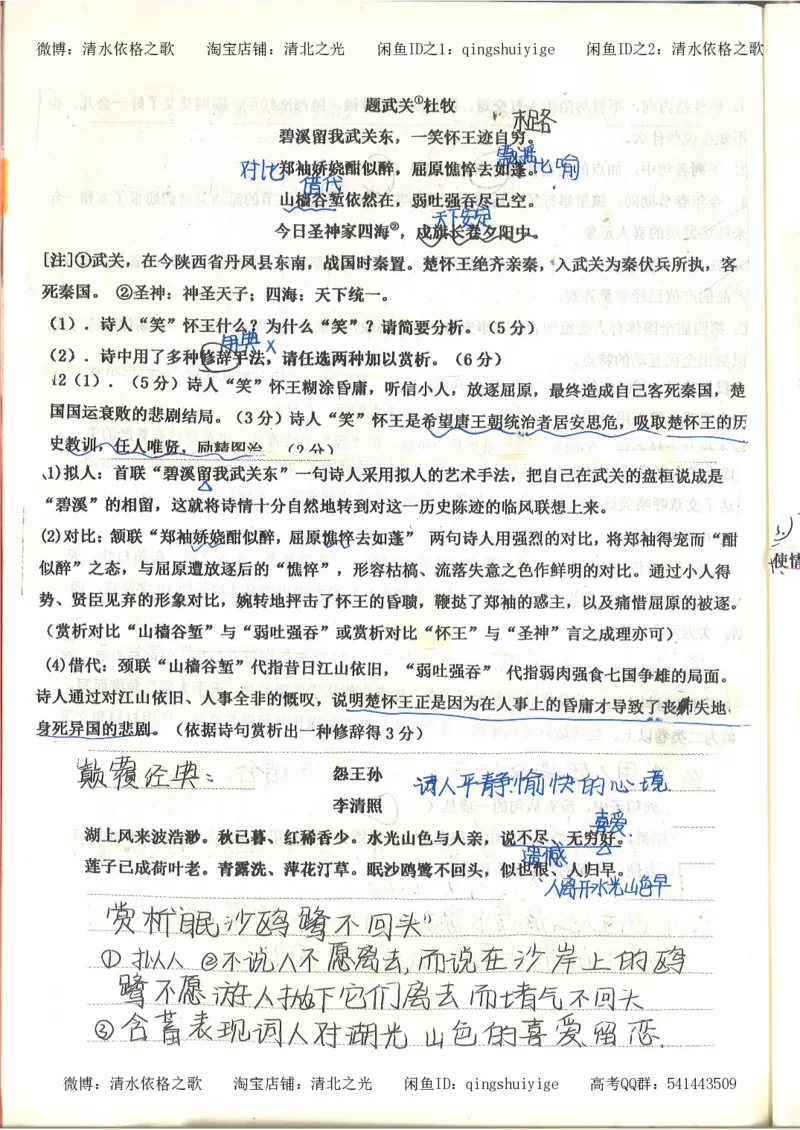 微博：清水依格之歌 淘宝店铺：清北之光 闲鱼ID之1：qingshuiyige 闲鱼ID之2：清水依格之歌
题武关①杜牧
相路
碧溪留我武关东，一笑怀王迹自穷。
飘泄
对比 郑袖娇娆酣似醉，屈原憔悴去如蓬。比喻
借代
山樯谷堑依然在，弱吐强吞尽已空。
天下安定
今日圣神家四海②，戍旗长卷夕阳中。
[注]①武关，在今陕西省丹凤县东南，战国时秦置。楚怀王绝齐亲秦，入武关为秦伏兵所执，客
死秦国。 ②圣神：神圣天子；四海：天下统一。
（1）．诗人“笑”怀王什么？为什么“笑”？请简要分析。（5 分）
用典 x
（2）．诗中用了多种修辞手法，请任选两种加以赏析。（6 分）
12（1）．（5 分）诗人“笑”怀王糊涂昏庸，听信小人，放逐屈原，最终造成自己客死秦国，楚
国国运衰败的悲剧结局。（3 分）诗人“笑”怀王是希望唐王朝统治者居安思危，吸取楚怀王的历
史教训，任人唯贤，励精图治。（2 分）
1)拟人：首联“碧溪留我武关东”一句诗人采用拟人的艺术手法，把自己在武关的盘桓说成是
“碧溪”的相留，这就将诗情十分自然地转到对这一历史陈迹的临风联想上来。
(2)对比：颔联“郑袖娇娆酣似醉，屈原憔悴去如蓬” 两句诗人用强烈的对比，将郑袖得宠而“酣
似醉”之态，与屈原遭放逐后的“憔悴”，形容枯槁、流落失意之色作鲜明的对比。通过小人得
势、贤臣见弃的形象对比，婉转地抨击了怀王的昏聩，鞭挞了郑袖的惑主，以及痛惜屈原的被逐。
（赏析对比“山樯谷堑”与“弱吐强吞”或赏析对比“怀王”与“圣神”言之成理亦可）
(4)借代：颈联“山樯谷堑”代指昔日江山依旧，“弱吐强吞” 代指弱肉强食七国争雄的局面。
诗人通过对江山依旧、人事全非的慨叹，说明楚怀王正是因为在人事上的昏庸才导致了丧师失地、
身死异国的悲剧。（依据诗句赏析出一种修辞得 3 分）
颠覆经典：
怨王孙
词人平静愉快的心境
李清照
喜爱
湖上风来波浩渺。秋已暮、红稀香少。水光山色与人亲，说不尽、无穷好。
遗憾
莲子已成荷叶老。青露洗、萍花汀草。眠沙鸥鹭不回头，似也恨、人归早。
人离开水光山色早
赏析“眠沙鸥鹭不回头”
① 拟人 ②不说人不愿离去，而说在沙岸上的鸥
鹭不愿游人抛下它们离去而堵气不回头
③ 含蓄表现词人对湖光山色的喜爱留恋.
使情
微博：清水依格之歌 淘宝店铺：清北之光 闲鱼ID：qingshuiyige 高考QQ群：541443509